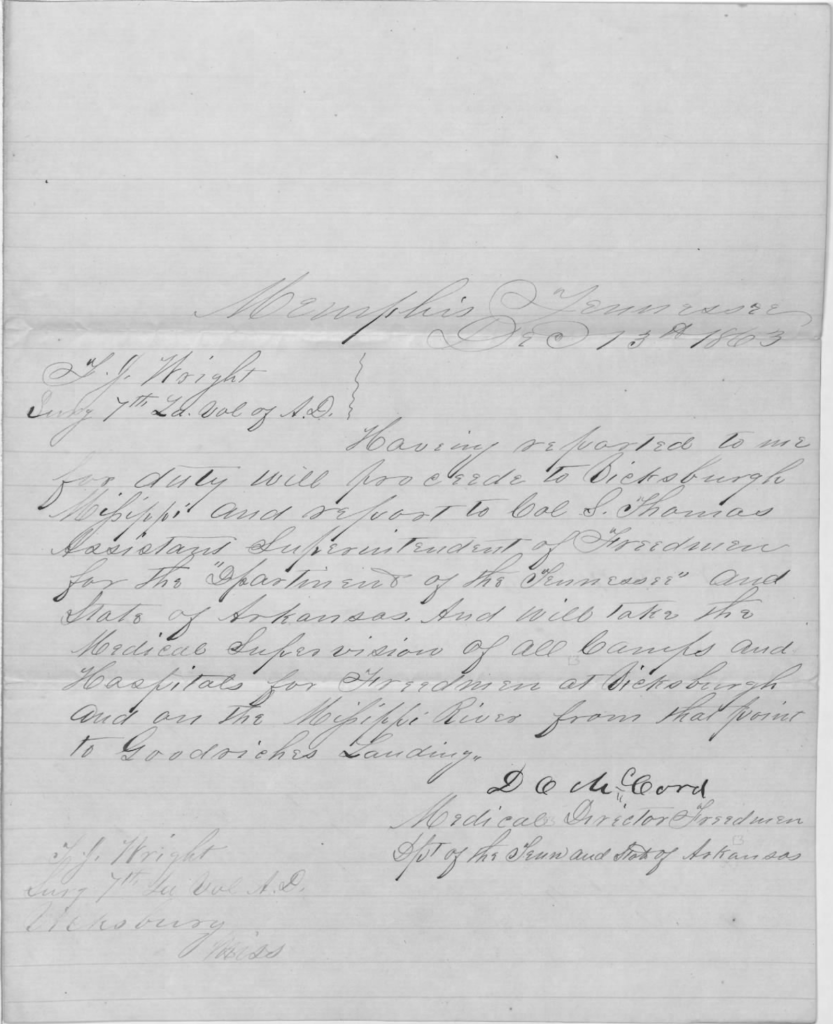 Memphis Tennessee
Dec 13th 1863
T. J. Wright
Surg 7th La. Vol of A.D.
Having reported to me
for duty will proceede to Vicksburgh
Missippi and report to Col S. Thomas
Assistant Superintendent of Freedmen
for the "Dpartment of the Tennessee" and
State of Arkansas. And will take the
Medical Supervision of all Camps and
Hospitals for Freedmen at Vicksburgh
and on the Missippi River from that point
to Goodriches Landing"
D O McCord
Medical Director Freedmen
Dpt of the Tenn and State of Arkansas
T. J. Wright
Surg 7th La Vol A.D.
Vicksburg
Miss